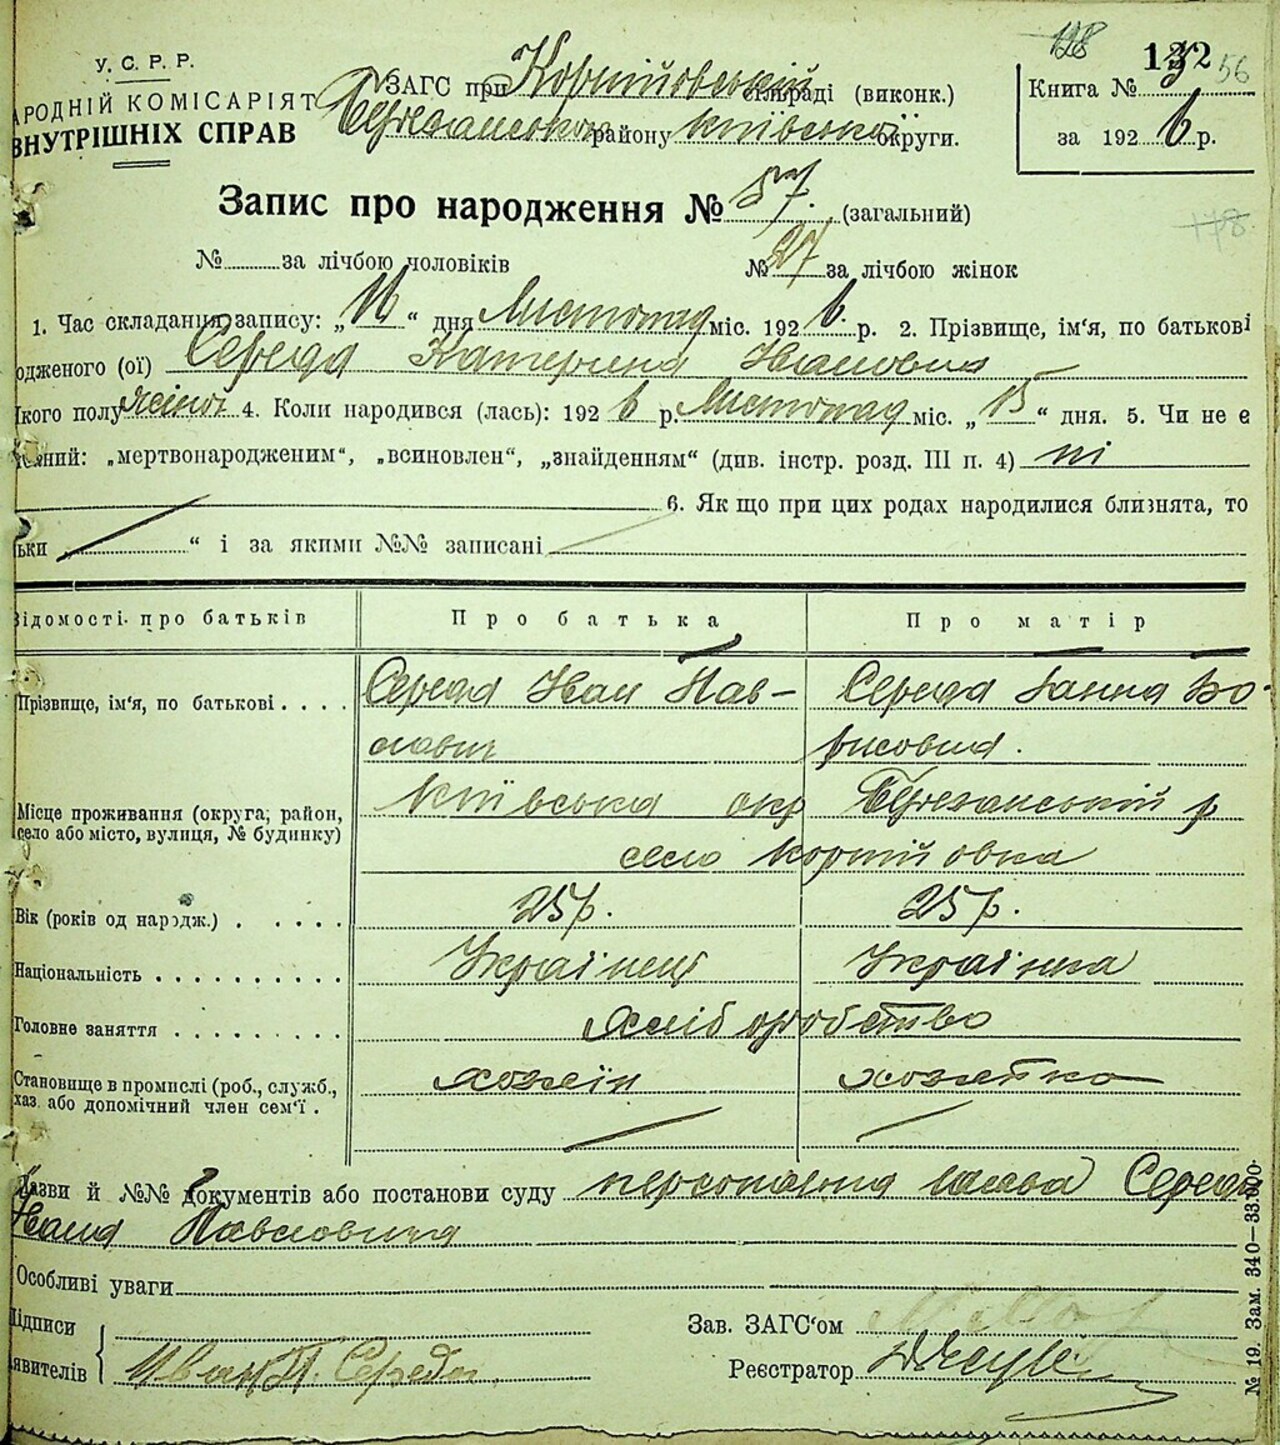 128
132 56
У. С. Р. Р.
НАРОДНІЙ КОМІСАРІЯТ
ВНУТРІШНІХ СПРАВ
ЗАГС при Корнійовській сільраді (виконк.)
району Київської округи.
Книга №
за 1926 р.
Запис про народження № 57. (загальний)
178
№ за лічбою чоловіків № 27 за лічбою жінок
1. Час складання запису: „16“ дня Листопад міс. 1926 р. 2. Прізвище, ім‘я, по батькові
одженого (ої) Середа Катерина Івановна
кого полу жіноч 4. Коли народився (лась): 1926 р. Листопад міс. „15“ дня. 5. Чи не є
ний: „мертвонародженим“, „всиновлен“, „знайденням“ (див. інстр. розд. III п. 4) ні
6. Як що при цих родах народилися близнята, то
ьки „ “ і за якими №№ записані
Відомості про батьків Про батька Про матір
Прізвище, ім‘я, по батькові . . . . Середа Іван Пав- Середа Ганна Бо-
лович рисовна.
Місце проживання (округа, район, село або місто, вулиця, № будинку) Київська окр р
село Корнійовка
Вік (років од народж.) . . . . . 25 р. 25 р.
Національність . . . . . . . . . . Українець Українка
Головне заняття . . . . . . . . . Хліборобство
Становище в промислі (роб., служб., хаз. або допомічний член сем‘ї . хозяїн хозяйка
Назви й №№ документів або постанови суду персональна Середа
Івана Павловича
Особливі уваги
Підписи
явителів Иван П. Середа
Зав. ЗАГС‘ом
Реєстратор
№ 19. Зам. 340—33.000.